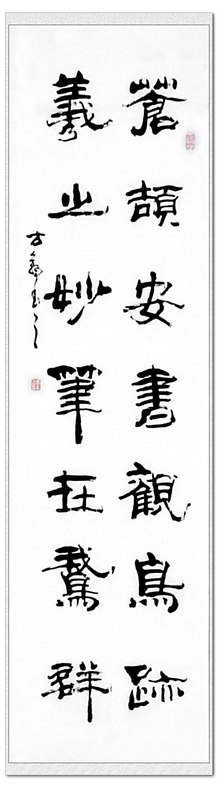 蒼頡安書觀鳥跡
羲之妙筆在鵞群